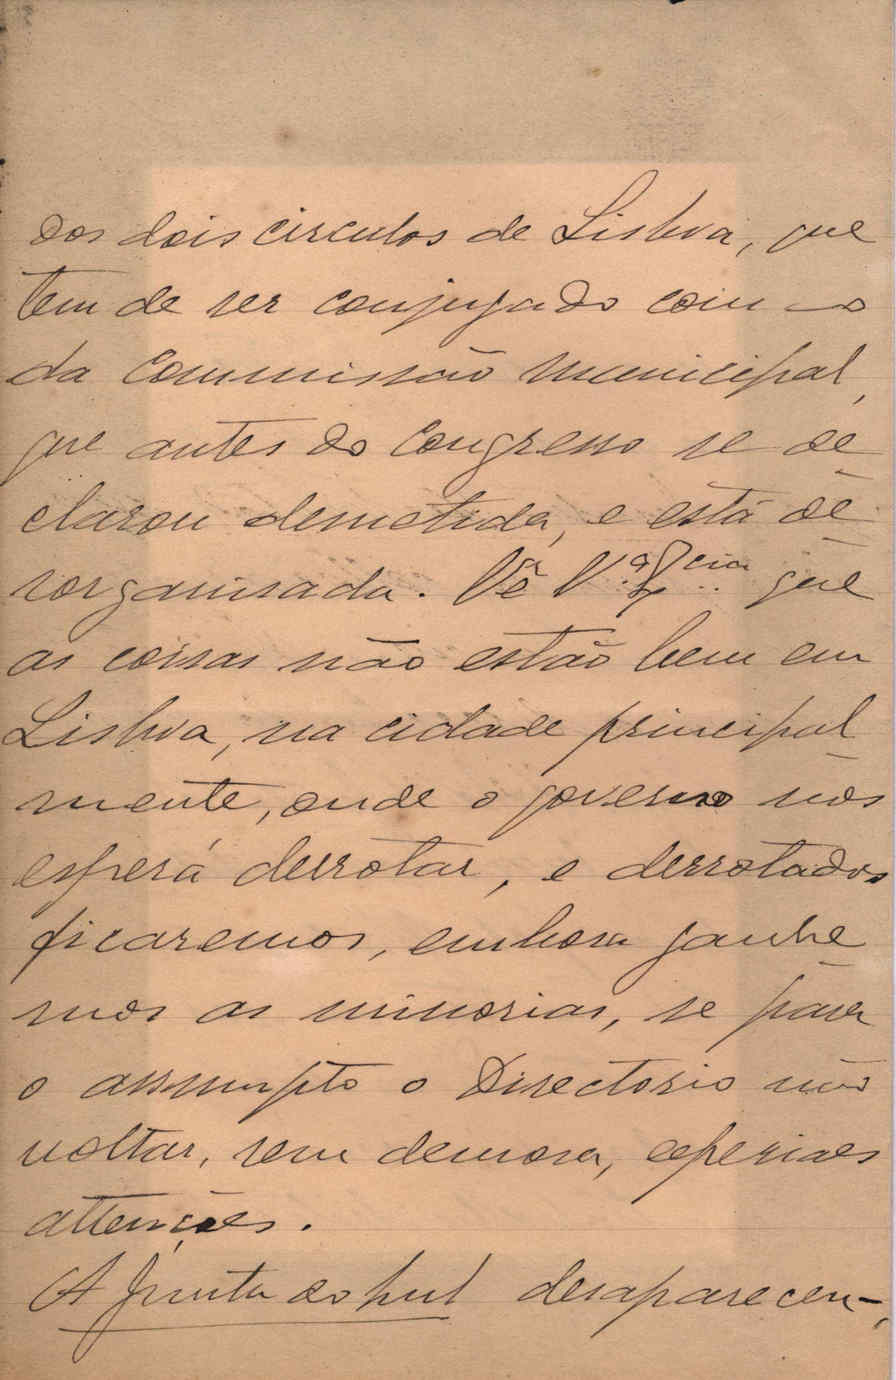 dos dois circulos de Lisboa, que
tem de ser conjugado com o
da Commissão Municipal,
que antes do Congresso se de
clarou demetida, e está de
sorganisada. Vê V.ª Ex.cia que
as coisas não estão bem em
Lisboa, na cidade principal
mente, onde o governo nos
esperá derrotar, e derrotados
ficaremos, embora ganhe
mos as minorias, se para
o assumpto o Directorio não
voltar, sem demora, especiaes
attenções.
A Junta do Sul desapareceu,